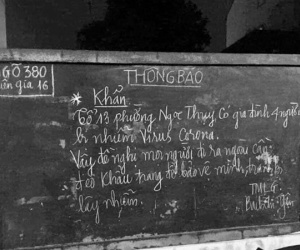 GỖ 380
THÔNG BÁO
* Khẩn.
Tổ 13 phường Ngọc Thụy Có gia đình 4 người
bị nhiễm Virus Corona.
Vậy đề nghị mọi người đi ra ngoài cần
đeo khẩu trang để bảo vệ mình, tránh
lây nhiễm.